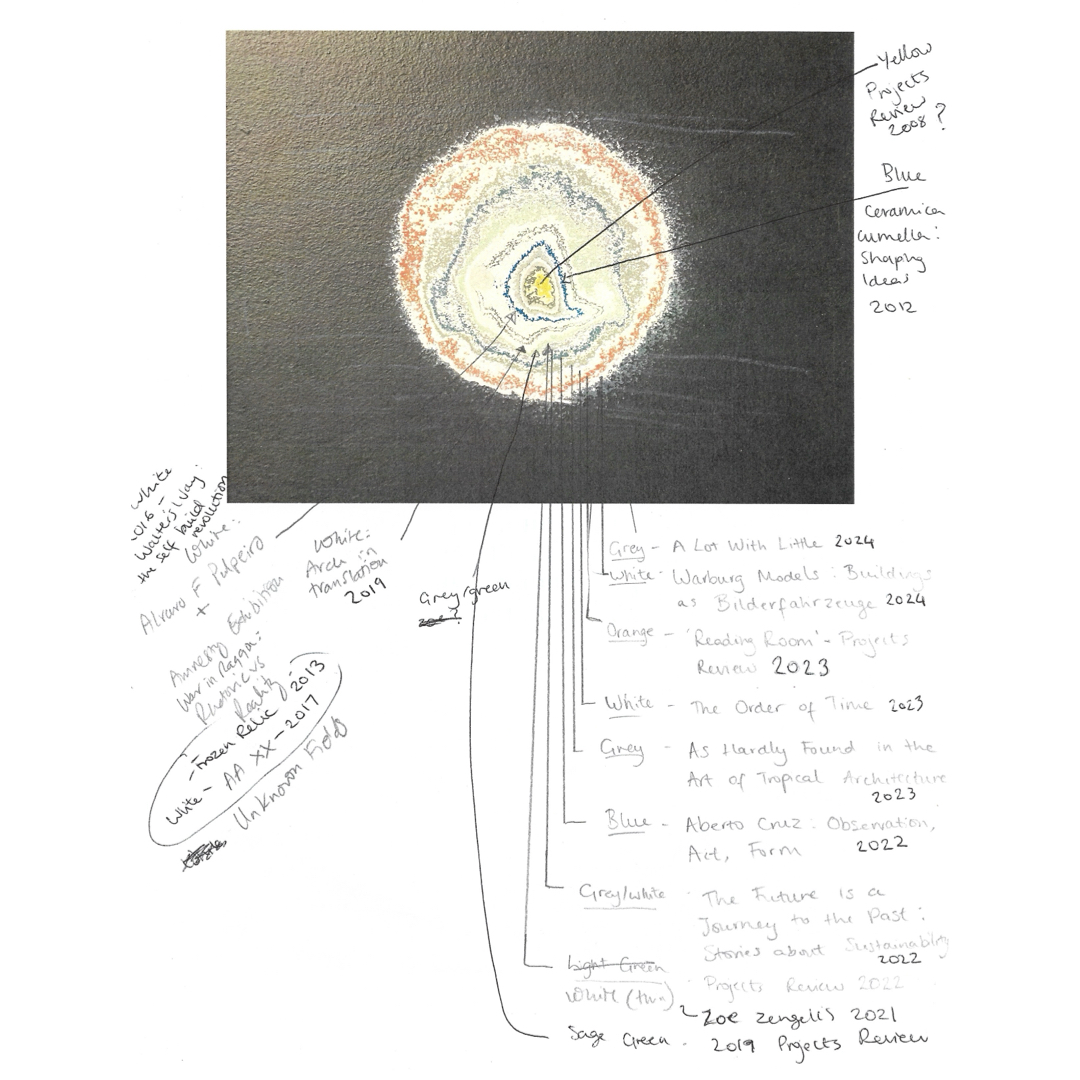 Yellow
Projects
Review
2008?
Blue
Ceramica
Cumella:
Shaping
Ideas
2012
White
2016 -
Walter's Way:
the self build
revolution
White:
Alvaro F Pulpeiro
+
Amnesty Exhibition
War in Raqqa:
Rhetoric vs
Reality
- Frozen Relic - 2013
White - AA XX - 2017
Unknown Fields
White:
Arch in
translation
2019
Grey/green
Grey - A Lot With Little 2024
White - Warburg Models: Buildings
as Bilderfahrzeuge 2024
Orange - 'Reading Room' - Projects
Review 2023
White - The Order of Time 2023
Grey - As Hardly Found in the
Art of Tropical Architecture
2023
Blue - Aberto Cruz: Observation,
Act, Form 2022
Grey/white - The Future is a
Journey to the Past:
Stories about Sustainability
2022
Light Green
White (thin) - Projects Review 2022
Zoe Zengelis 2021
Sage Green - 2019 Projects Review